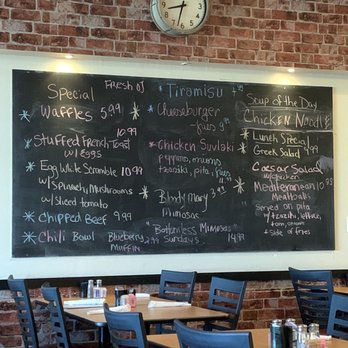 Special
Waffles 5.99
Stuffed French Toast 10.99
w/ Eggs
Egg White Scramble 10.99
w/ Spinach, Mushrooms
w/ Sliced tomato
Chipped Beef 9.99
Chili Bowl Blueberry 2.99
Muffin
Fresh OJ
Tiramisu
Cheeseburger
9.99
Chicken Suvlaki
peppers, onions
tzatziki, pita,
Bloody Mary 3.99
Mimosas
"Bottomless Mimosas"
Sundays 14.99
Soup of the Day
Chicken Noodle
Lunch Special
Greek Salad
Caesar Salad
w/ chicken
Mediterranean 10.99
Meatballs
Served on pita
w/ tzatziki, lettuce,
tom, onions
+ side of fries